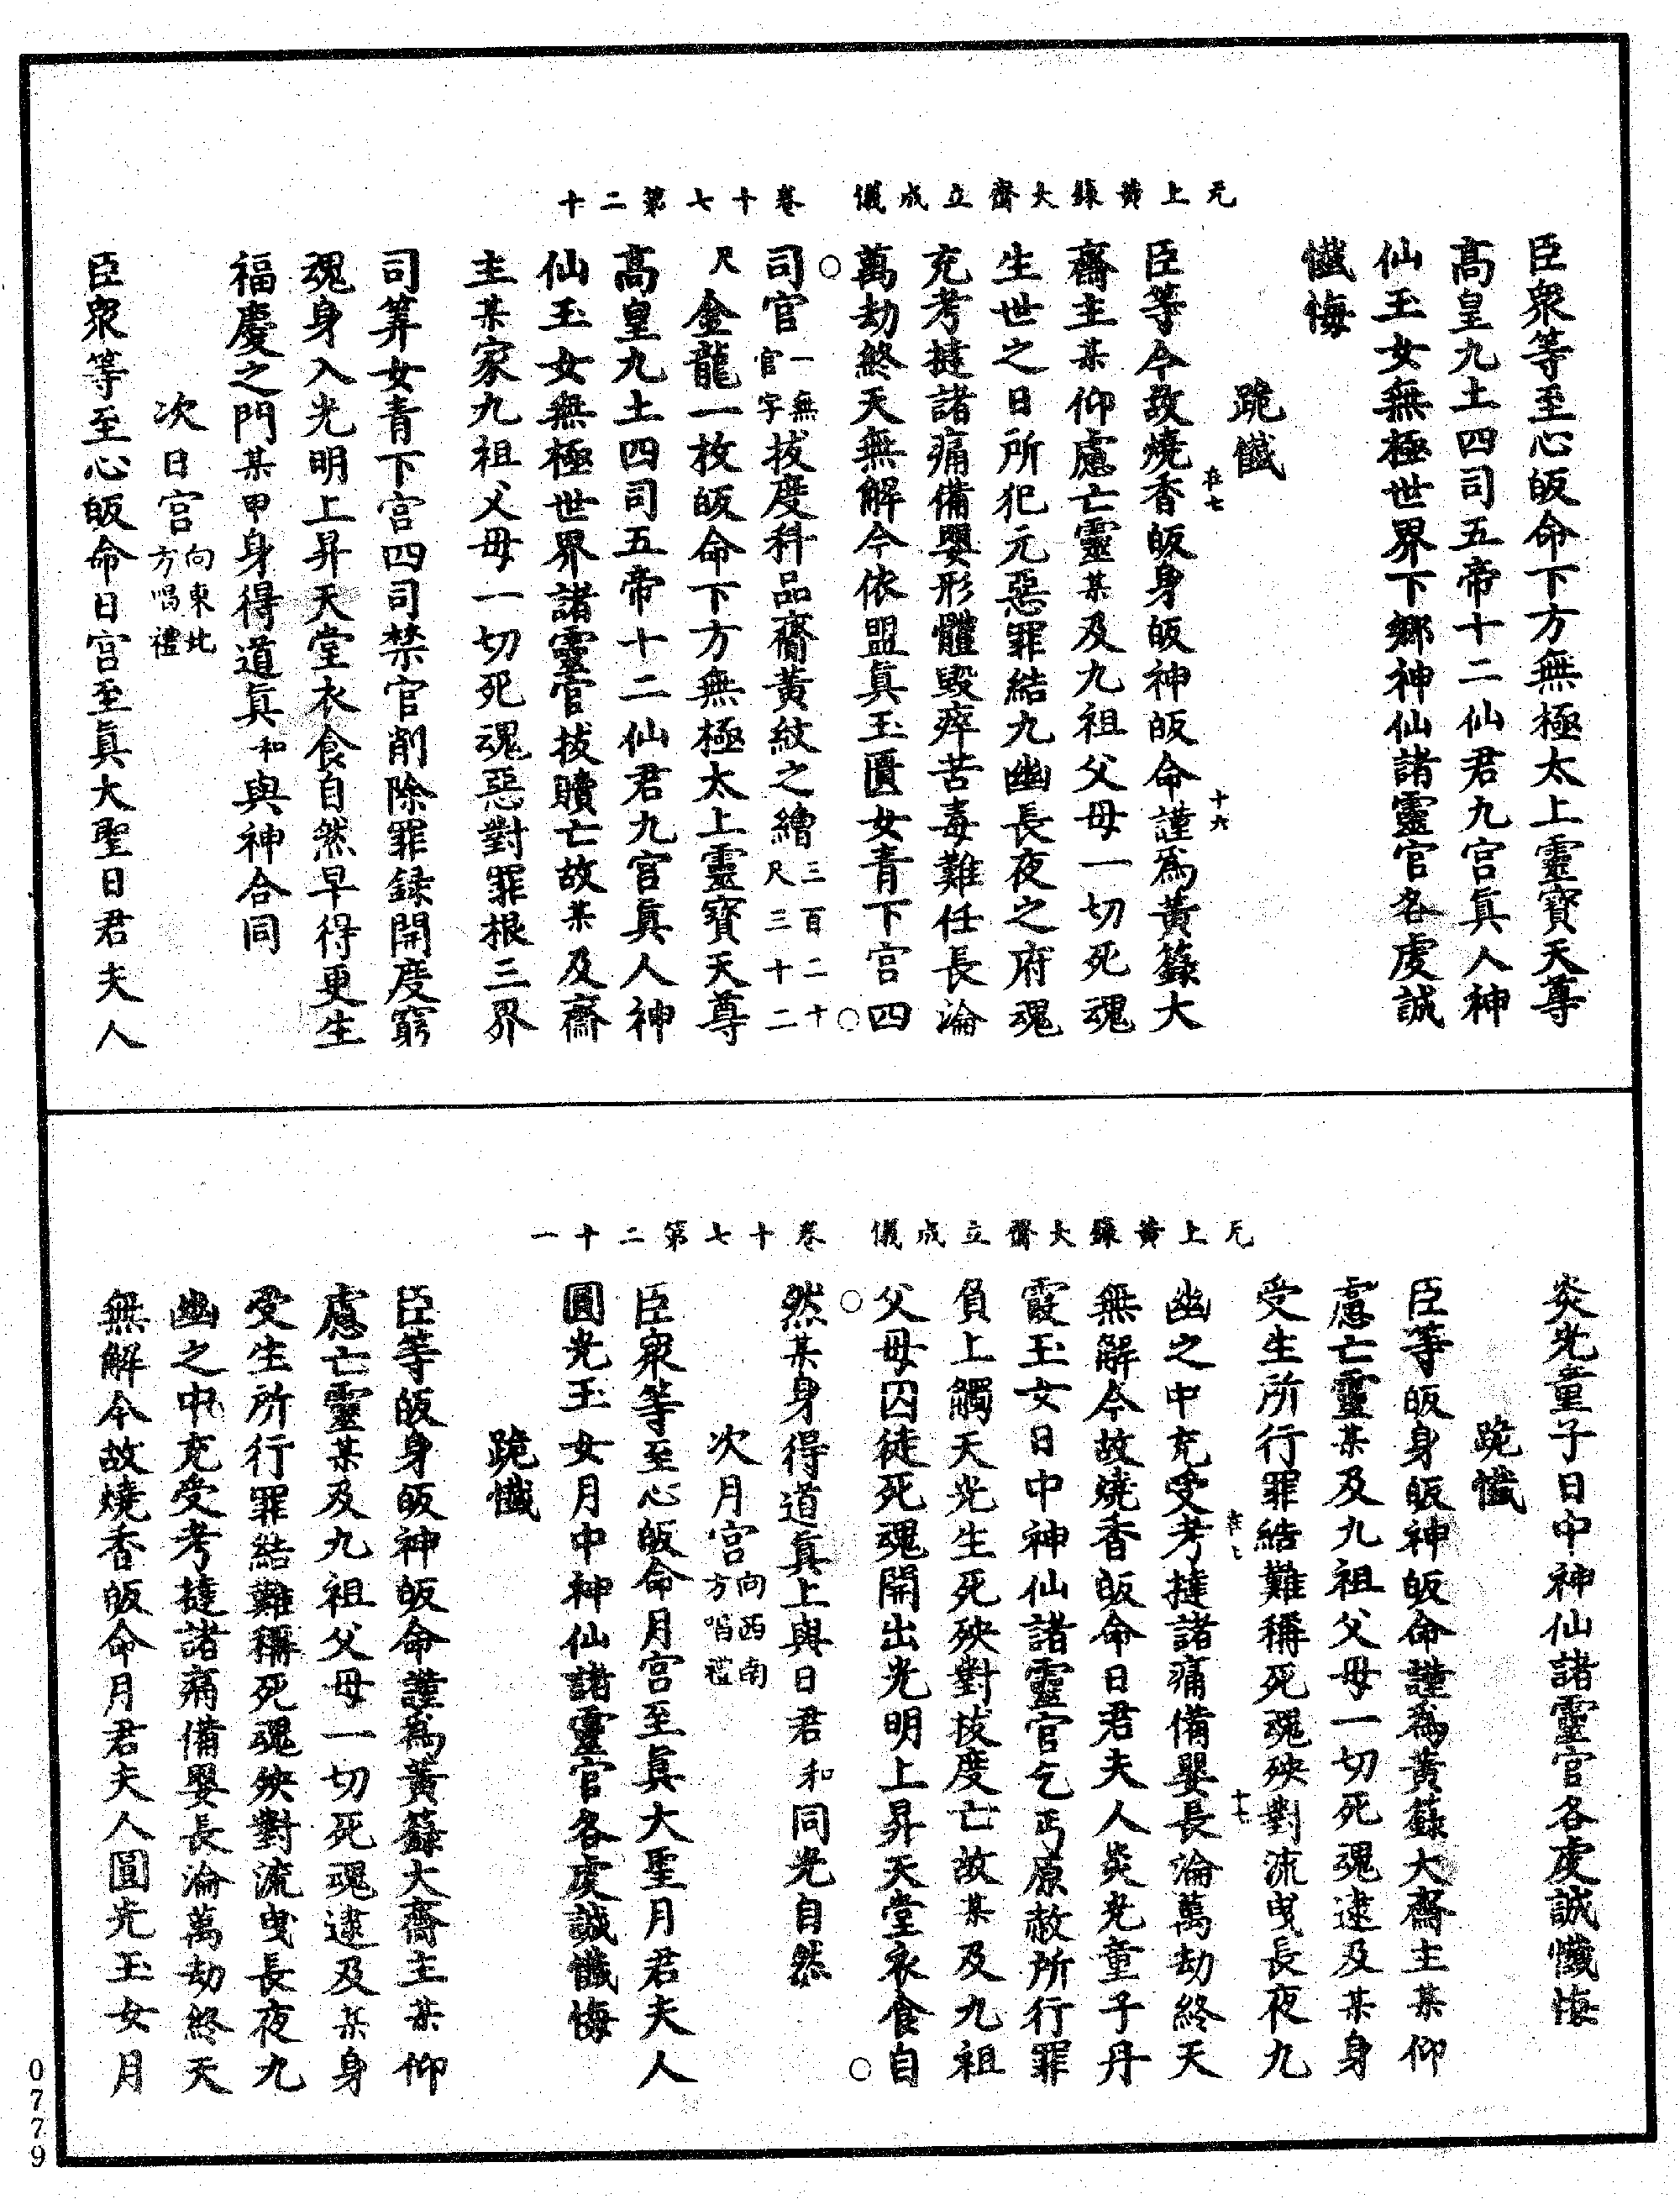 无上黃籙大齋立成儀　卷十七第二十
臣衆等至心皈命下方無極太上靈寶天尊
高皇九土四司五帝十二仙君九宮眞人神
仙玉女無極世界下鄉神仙諸靈官各虔誠
懺悔
跪懺
臣等今故燒香皈身皈神皈命謹爲黃籙大
齋主某仰慮亡靈某及九祖父母一切死魂
生世之日所犯元惡罪結九幽長夜之府魂
充考撻諸痛備嬰形體毀瘁苦毒難任長淪
萬劫終天無解今依盟眞玉匱女青下宮四
司官一無官字拔度科品齋黃紋之繒三百二十尺三十二
尺金龍一枚皈命下方無極太上靈寶天尊
高皇九土四司五帝十二仙君九官眞人神
仙玉女無極世界諸靈官拔贖亡故某及齋
主某家九祖父母一切死魂惡對罪根三界
司筭女青下宮四司禁官削除罪録開度窮
魂身入光明上昇天堂衣食自然早得更生
福慶之門某甲身得道眞和與神合同
次日宮向東北方唱禮
臣衆等至心皈命日宮至眞大聖日君夫人
十六
无上黃籙大齋立成儀　卷十七第二十一
炎光童子日中神仙諸靈官各虔誠懺悔
跪懺
臣等皈身皈神皈命謹爲黃籙大齋主某仰
慮亡靈某及九祖父母一切死魂逮及某身
受生所行罪結難稱死魂殃對流曳長夜九
幽之中充受考撻諸痛備嬰長淪萬劫終天
無解今故燒香皈命日君夫人炎光童子丹
霞玉女日中神仙諸靈官乞丐原赦所行罪
負上觸天光生死殃對拔度亡故某及九祖
父母囚徒死魂開出光明上昇天堂衣食自
然某身得道眞上與日君和同光自然
次月宮向西南方唱禮
臣衆等至心皈命月宮至眞大聖月君夫人
圓光玉女月中神仙諸靈官各虔誠懺悔
跪懺
臣等皈身皈神皈命謹爲黃籙大齋主某仰
慮亡靈某及九祖父母一切死魂逮及某身
受生所行罪結難稱死魂殃對流曳長夜九
幽之中充受考撻諸痛備嬰長淪萬劫終天
無解今故燒香皈命月君夫人圓光玉女月
十七
0779